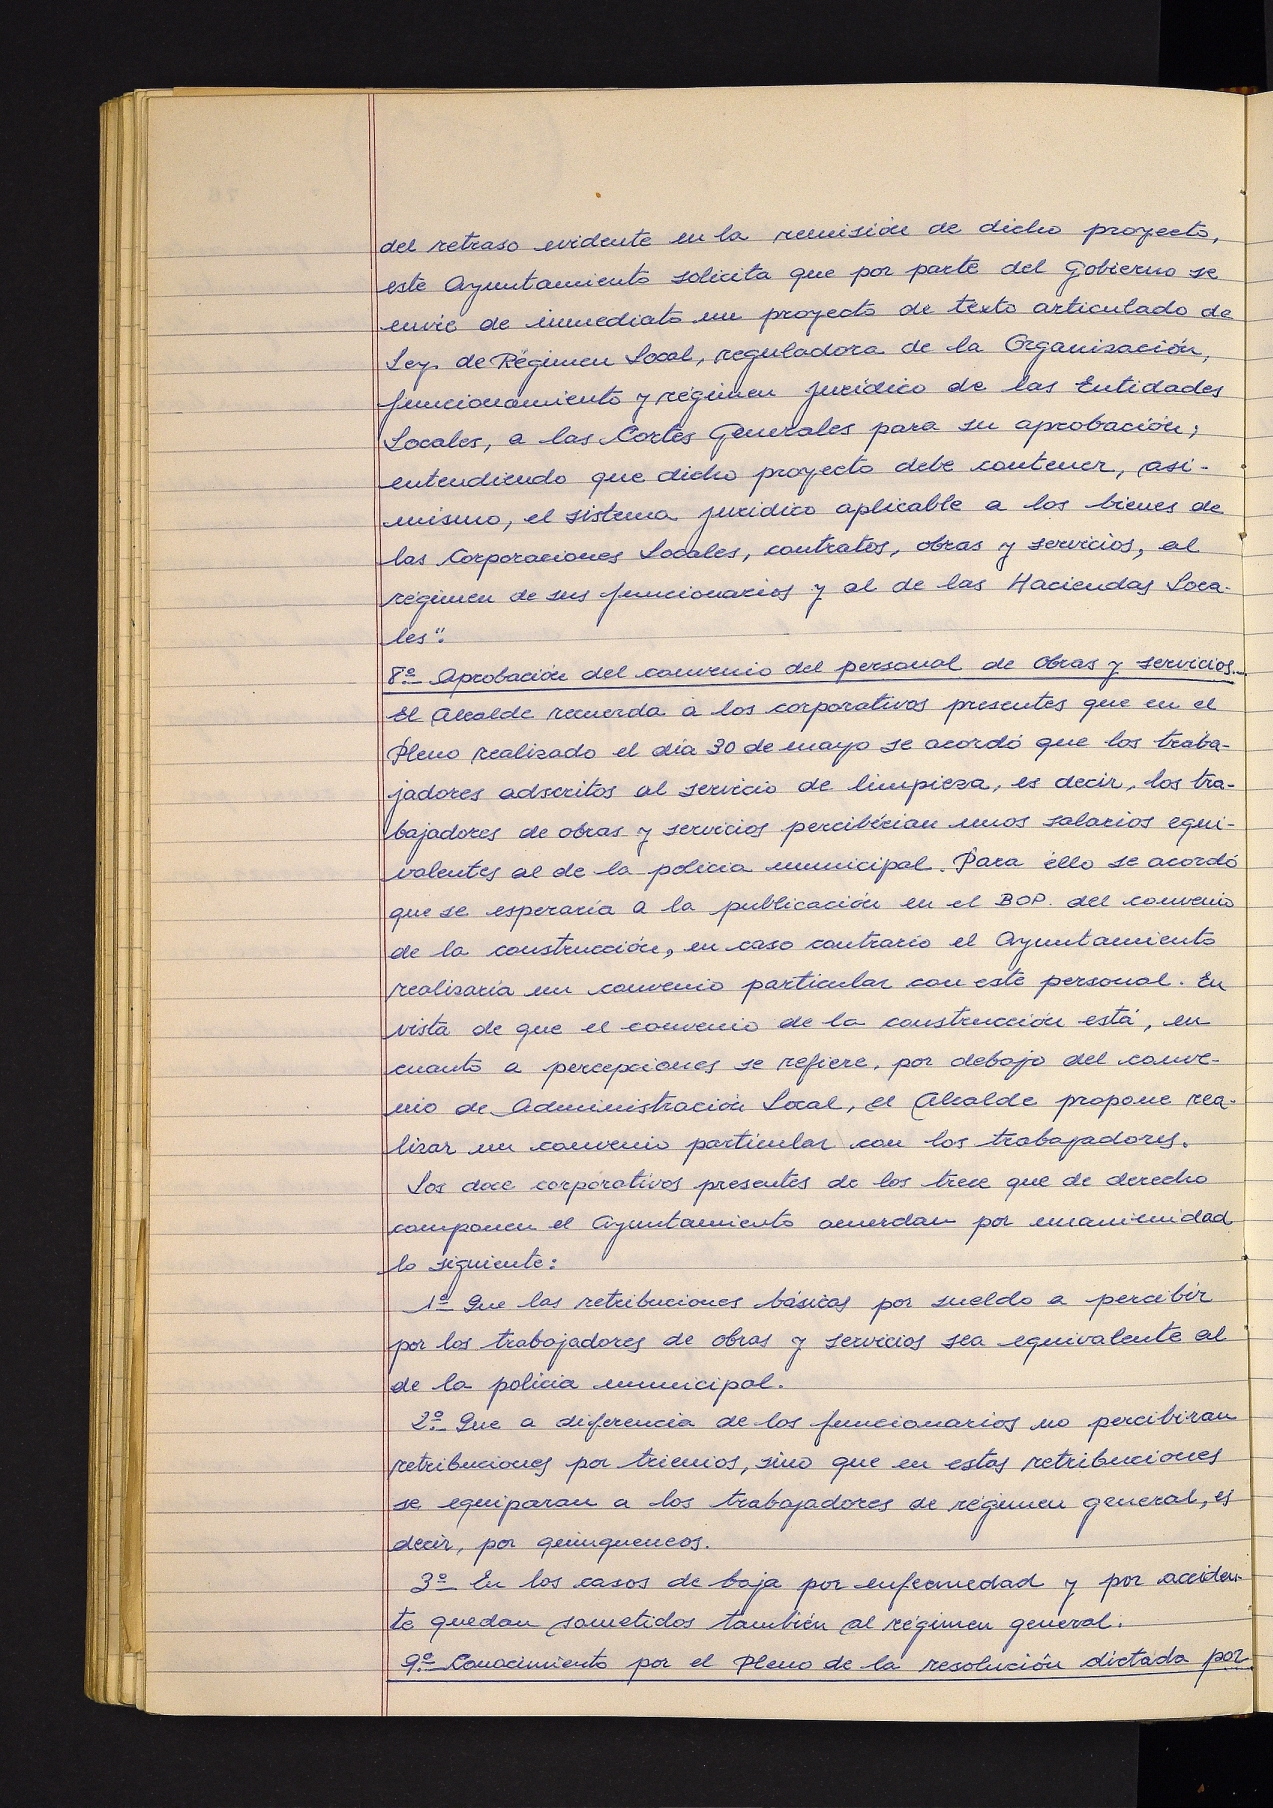 del retraso evidente en la remisión de dicho proyecto,
este Ayuntamiento solicita que por parte del Gobierno se
envíe de inmediato un proyecto de texto articulado de
Ley de Régimen Local, reguladora de la Organización,
funcionamiento y régimen jurídico de las Entidades
Locales, a las Cortes Generales para su aprobación;
entendiendo que dicho proyecto debe contener, asi-
mismo, el sistema jurídico aplicable a los bienes de
las Corporaciones Locales, contratos, obras y servicios, al
régimen de sus funcionarios y al de las Haciendas Loca-
les".
8º- Aprobación del convenio del personal de obras y servicios.-
El Alcalde recuerda a los corporativos presentes que en el
Pleno realizado el día 30 de mayo se acordó que los traba-
jadores adscritos al servicio de limpieza, es decir, los tra-
bajadores de obras y servicios percibirían unos salarios equi-
valentes al de la policía municipal. Para ello se acordó
que se esperaría a la publicación en el BOP. del convenio
de la construcción, en caso contrario el Ayuntamiento
realizaría un convenio particular con este personal. En
vista de que el convenio de la construcción está, en
cuanto a percepciones se refiere, por debajo del conve-
nio de Administración Local, el Alcalde propone rea-
lizar un convenio particular con los trabajadores.
Los doce corporativos presentes de los trece que de derecho
componen el Ayuntamiento acuerdan por unanimidad
lo siguiente:
1º Que las retribuciones básicas por sueldo a percibir
por los trabajadores de obras y servicios sea equivalente al
de la policía municipal.
2º- Que a diferencia de los funcionarios no percibiran
retribuciones por trienios, sino que en estas retribuciones
se equiparan a los trabajadores de régimen general, es
decir, por quinquenios.
3º En los casos de baja por enfermedad y por acciden-
te quedan sometidos también al régimen general.
9º- Conocimiento por el Pleno de la resolución dictada por